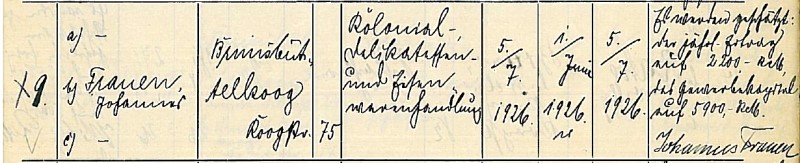 X 9.
a) –
b) Frauen,
Johannes
c) –
Brunsbüt-
telkoog
Koogstr. 75
Kolonial-,
Delikatessen-
und Eisen
warenhandlung
5./7. 1926.
1. Juni 1926.
5./7. 1926.
Es werden geschätzt:
der jährl. Ertrag
auf 2200.- RM.
das Gewerbekapital
auf 5900.- RM.
Johannes Frauen